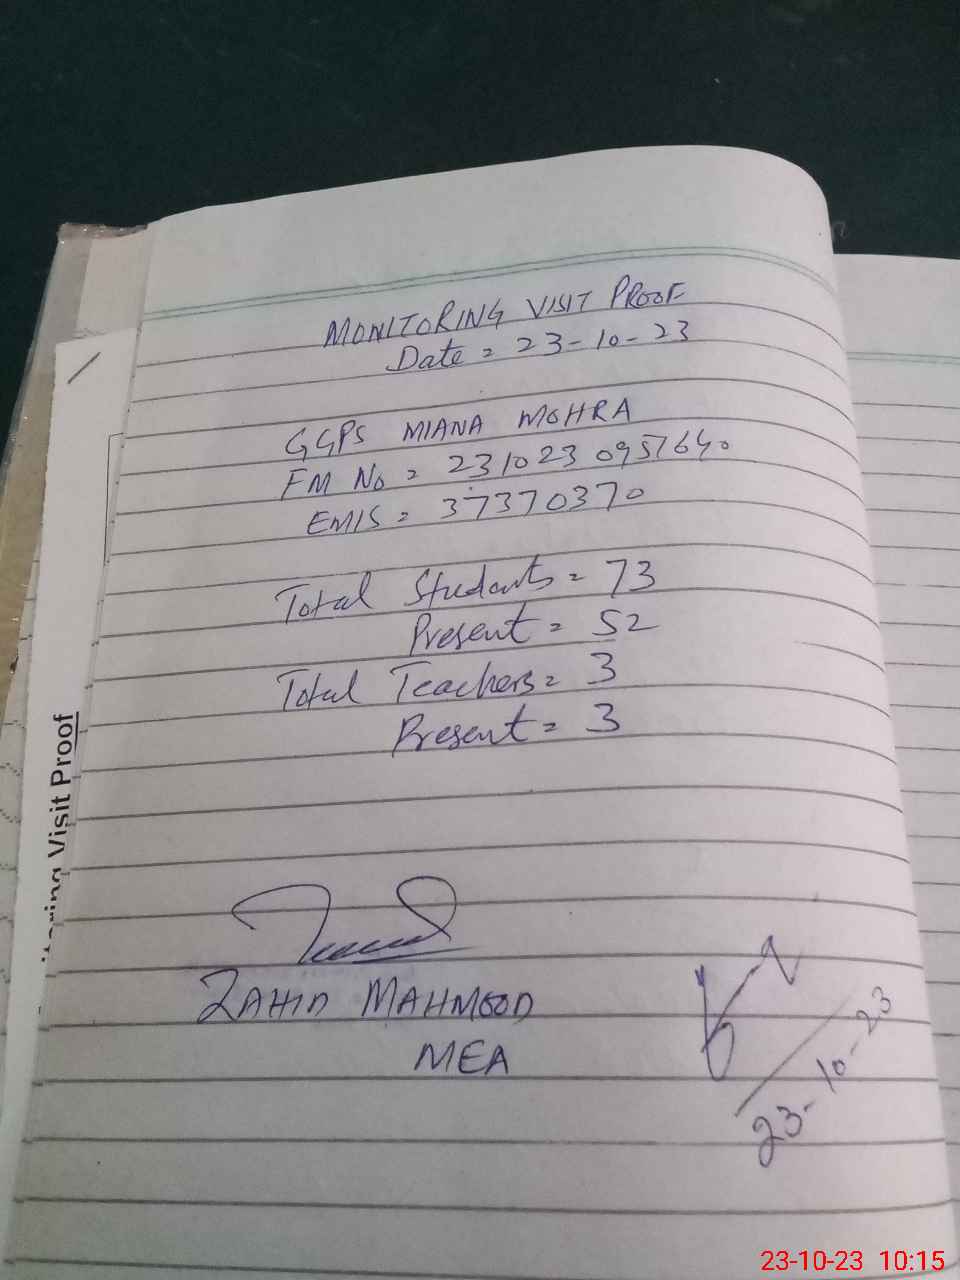 MONITORING VISIT PROOF
Date = 23-10-23
GGPS MIANA MOHRA
FM No = 231023 0957640
EMIS = 37370370
Total Students = 73
Present = 52
Total Teachers = 3
Present = 3
ZAHID MAHMOOD
MEA
23-10-23
itoring Visit Proof
23-10-23 10:15